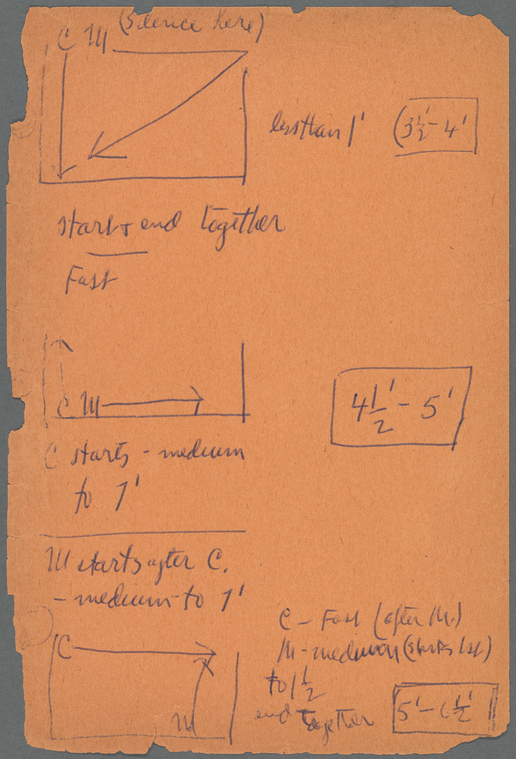 (Silence here)
C M
less than 1' (3½' - 4'
start & end together
Fast
C M
4½' - 5'
C starts - medium
to 1'
M starts after C.
- medium - to 1'
C
M
C - Fast (after M.)
M - medium (starts 1st)
to 1½
end together
5' - 6½'